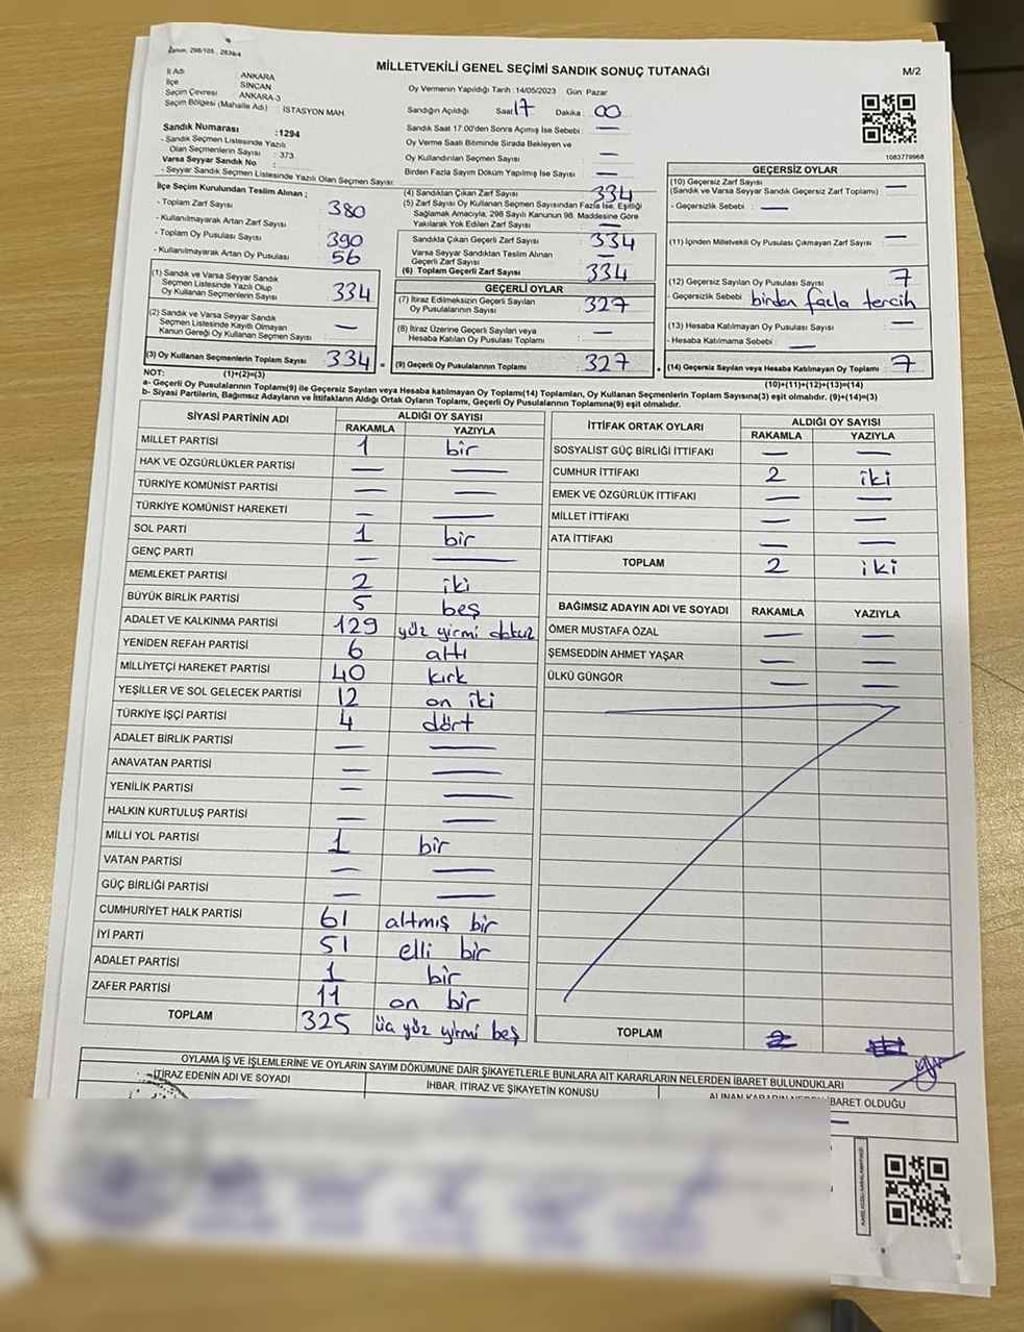 Kanun, 298/105, 2839/4
MİLLETVEKİLİ GENEL SEÇİMİ SANDIK SONUÇ TUTANAĞI
M/2
İl Adı ANKARA
İlçe SİNCAN
Seçim Çevresi ANKARA-3
Seçim Bölgesi (Mahalle Adı) : İSTASYON MAH.
Sandık Numarası :1294
- Sandık Seçmen Listesinde Yazılı
Olan Seçmenlerin Sayısı : 373
Varsa Seyyar Sandık No :
- Seyyar Sandık Seçmen Listesinde Yazılı Olan Seçmen Sayısı:
Oy Vermenin Yapıldığı Tarih :14/05/2023 Gün: Pazar
Sandığın Açıldığı Saat 17 Dakika : 00
Sandık Saat 17.00'den Sonra Açılmış İse Sebebi : —
Oy Verme Saati Bitiminde Sırada Bekleyen ve
Oy Kullandırılan Seçmen Sayısı —
Birden Fazla Sayım Döküm Yapılmış İse Sayısı —
1083779968
İlçe Seçim Kurulundan Teslim Alınan ;
- Toplam Zarf Sayısı : 380
- Kullanılmayarak Artan Zarf Sayısı :
- Toplam Oy Pusulası Sayısı : 390
- Kullanılmayarak Artan Oy Pusulası : 56
(1) Sandık ve Varsa Seyyar Sandık
Seçmen Listesinde Yazılı Olup
Oy Kullanan Seçmenlerin Sayısı : 334
(2) Sandık ve Varsa Seyyar Sandık
Seçmen Listesinde Kayıtlı Olmayan
Kanun Gereği Oy Kullanan Seçmen Sayısı : —
(3) Oy Kullanan Seçmenlerin Toplam Sayısı : 334 =
(4) Sandıktan Çıkan Zarf Sayısı 334
(5) Zarf Sayısı Oy Kullanan Seçmen Sayısından Fazla İse, Eşitliği
Sağlamak Amacıyla, 298 Sayılı Kanunun 98. Maddesine Göre
Yakılarak Yok Edilen Zarf Sayısı : —
Sandıkta Çıkan Geçerli Zarf Sayısı : 334
Varsa Seyyar Sandıktan Teslim Alınan
Geçerli Zarf Sayısı : —
(6) Toplam Geçerli Zarf Sayısı : 334
GEÇERLİ OYLAR
(7) İtiraz Edilmeksizin Geçerli Sayılan
Oy Pusulalarının Sayısı : 327
(8) İtiraz Üzerine Geçerli Sayılan veya
Hesaba Katılan Oy Pusulası Toplamı : —
(9) Geçerli Oy Pusulalarının Toplamı : 327
GEÇERSİZ OYLAR
(10) Geçersiz Zarf Sayısı
(Sandık ve Varsa Seyyar Sandık Geçersiz Zarf Toplamı) : —
- Geçersizlik Sebebi : —
(11) İçinden Milletvekili Oy Pusulası Çıkmayan Zarf Sayısı : —
(12) Geçersiz Sayılan Oy Pusulası Sayısı : 7
- Geçersizlik Sebebi : birden fazla tercih
(13) Hesaba Katılmayan Oy Pusulası Sayısı : —
- Hesaba Katılmama Sebebi : —
+ (14) Geçersiz Sayılan veya Hesaba Katılmayan Oy Toplamı : 7
NOT: (1)+(2)=(3)
(10)+(11)+(12)+(13)=(14)
a- Geçerli Oy Pusulalarının Toplamı(9) ile Geçersiz Sayılan veya Hesaba katılmayan Oy Toplamı(14) Toplamları, Oy Kullanan Seçmenlerin Toplam Sayısına(3) eşit olmalıdır. (9)+(14)=(3)
b- Siyasi Partilerin, Bağımsız Adayların ve İttifakların Aldığı Ortak Oyların Toplamı, Geçerli Oy Pusulalarının Toplamına(9) eşit olmalıdır.
SİYASİ PARTİNİN ADI ALDIĞI OY SAYISI
RAKAMLA YAZIYLA
MİLLET PARTİSİ 1 bir
HAK VE ÖZGÜRLÜKLER PARTİSİ — —
TÜRKİYE KOMÜNİST PARTİSİ — —
TÜRKİYE KOMÜNİST HAREKETİ — —
SOL PARTİ 1 bir
GENÇ PARTİ — —
MEMLEKET PARTİSİ 2 iki
BÜYÜK BİRLİK PARTİSİ 5 beş
ADALET VE KALKINMA PARTİSİ 129 yüz yirmi dokuz
YENİDEN REFAH PARTİSİ 6 altı
MİLLİYETÇİ HAREKET PARTİSİ 40 kırk
YEŞİLLER VE SOL GELECEK PARTİSİ 12 on iki
TÜRKİYE İŞÇİ PARTİSİ 4 dört
ADALET BİRLİK PARTİSİ — —
ANAVATAN PARTİSİ — —
YENİLİK PARTİSİ — —
HALKIN KURTULUŞ PARTİSİ — —
MİLLİ YOL PARTİSİ 1 bir
VATAN PARTİSİ — —
GÜÇ BİRLİĞİ PARTİSİ — —
CUMHURİYET HALK PARTİSİ 61 altmış bir
İYİ PARTİ 51 elli bir
ADALET PARTİSİ 1 bir
ZAFER PARTİSİ 11 on bir
TOPLAM 325 üç yüz yirmi beş
İTTİFAK ORTAK OYLARI ALDIĞI OY SAYISI
RAKAMLA YAZIYLA
SOSYALİST GÜÇ BİRLİĞİ İTTİFAKI — —
CUMHUR İTTİFAKI 2 iki
EMEK VE ÖZGÜRLÜK İTTİFAKI — —
MİLLET İTTİFAKI — —
ATA İTTİFAKI — —
TOPLAM 2 iki
BAĞIMSIZ ADAYIN ADI VE SOYADI RAKAMLA YAZIYLA
ÖMER MUSTAFA ÖZAL — —
ŞEMSEDDİN AHMET YAŞAR — —
ÜLKÜ GÜNGÖR — —
TOPLAM
OYLAMA İŞ VE İŞLEMLERİNE VE OYLARIN SAYIM DÖKÜMÜNE DAİR ŞİKAYETLERLE BUNLARA AİT KARARLARIN NELERDEN İBARET BULUNDUKLARI
İTİRAZ EDENİN ADI VE SOYADI
İHBAR, İTİRAZ VE ŞİKAYETİN KONUSU
ALINAN KARARIN NEDEN İBARET OLDUĞU
—